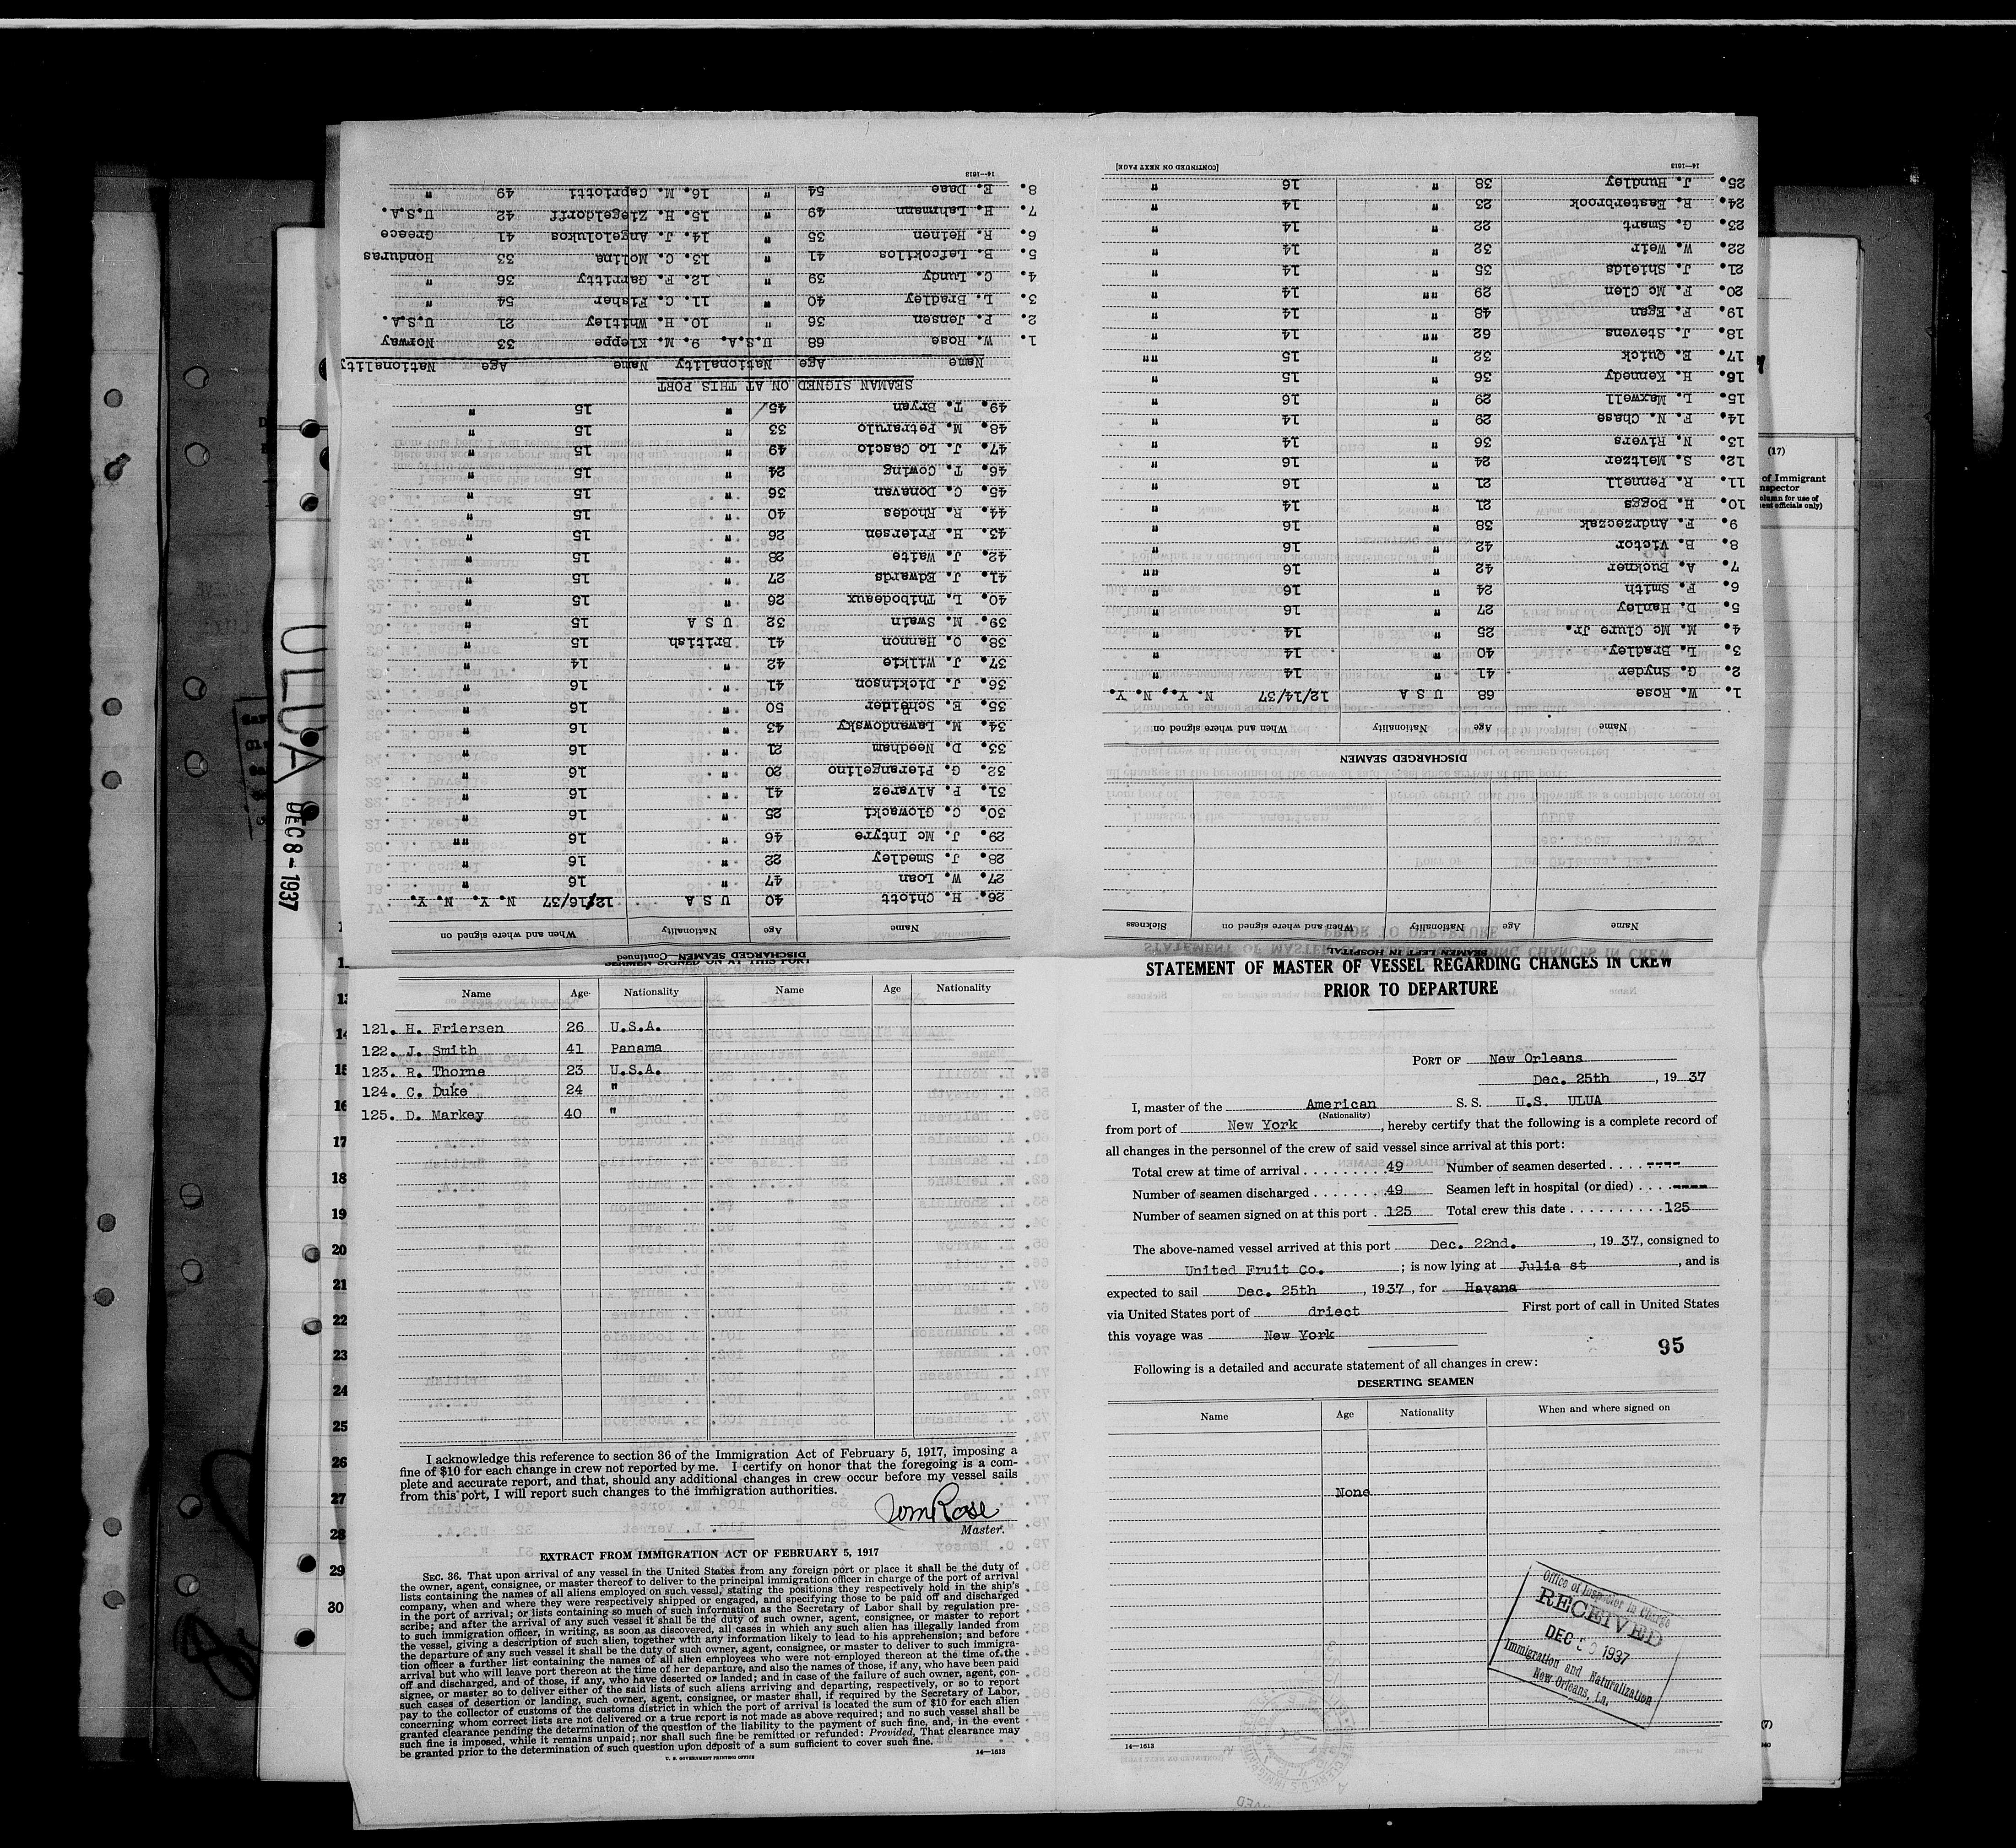 STATEMENT OF MASTER OF VESSEL REGARDING CHANGES IN CREW
PRIOR TO DEPARTURE
PORT OF New Orleans
Dec. 25th, 19 37
I, master of the American S. S. U.S. ULUA
(Nationality)
from port of New York, hereby certify that the following is a complete record of
all changes in the personnel of the crew of said vessel since arrival at this port:
Total crew at time of arrival . . . . . . . . 49 Number of seamen deserted . . . . ----
Number of seamen discharged . . . . . . . 49 Seamen left in hospital (or died) . . . . ----
Number of seamen signed on at this port . 125 Total crew this date . . . . . . . . . . 125
The above-named vessel arrived at this port Dec. 22nd., 19 37, consigned to
United Fruit Co. ; is now lying at Julia st, and is
expected to sail Dec. 25th, 1937, for Havana
via United States port of driect First port of call in United States
this voyage was New York
95
Following is a detailed and accurate statement of all changes in crew:
DESERTING SEAMEN
Name Age Nationality When and where signed on
None
Office of Inspector in Charge
RECEIVED
DEC 1937
Immigration and Naturalization
New Orleans, La.
14—1613
SEAMEN LEFT IN HOSPITAL
Name Age Nationality When and where signed on Sickness
DISCHARGED SEAMEN
Name Age Nationality When and where signed on
1. W. Rose 68 U S A 12/14/37 N. Y., N. Y.
2. G. Snyder 41 " 14 "
3. L. Bradley 40 " 14 "
4. M. Mc Clure Jr. 25 " 14 "
5. D. Hanley 27 " 16 "
6. F. Smith 24 " 16 "
7. A. Buckner 42 " 16 ""
8. B. Victor 42 " 16 "
9. F. Andrzeczak 38 " 16 "
10. H. Boggs 21 " 14 "
11. R. Pennell 21 " 16 "
12. S. Meltzer 24 " 16 "
13. N. Rivers 36 " 14 "
14. F. N. Chase 29 " 14 "
15. L. Maxwell 29 " 16 "
16. H. Kennedy 36 " 15 "
17. E. Quick 32 " 15 ""
18. J. Stevens 62 "" 14 "
19. F. Egan 48 " 14 "
20. F. Mc Clen 29 "" 14 "
21. J. Shields 35 " 14 "
22. W. Weir 32 " 14 "
23. G. Smart 22 " 14 "
24. R. Easterbrook 23 " 14 "
25. J. Hundley 38 " 16 "
14—1613 [CONTINUED ON NEXT PAGE]
DISCHARGED SEAMEN—Continued
Name Age Nationality When and where signed on
26. H. Chiott 40 U S A 12/16/37 N. Y. N. Y.
27. W. Loan 47 " 16 "
28. J. Smedley 22 " 16 "
29. J. Mc Intyre 46 " 16 ""
30. C. Glowacki 25 " 16 "
31. F. Alvarez 41 " 16 "
32. G. Pierangelino 20 " 16 "
33. D. Needham 21 " 16 "
34. M. Lewandowsky 43 " 16 "
35. E. Schsider 50 " 16 "
36. J. Dickinson 41 " 16 "
37. J. Wilkie 42 " 14 "
38. O. Hannon 41 British 15 "
39. M. Swain 32 U S A 15 "
40. L. Thibodeaux 26 " 15 "
41. J. Edwards 27 " 15 "
42. J. Waite 28 " 15 "
43. H. Friersen 26 " 15 "
44. R. Rhodes 40 " 15 "
45. C. Donavan 36 " 15 "
46. T. Cowing 24 " 15 "
47. J. Lo Cascio 49 " 15 "
48. M. Petrarulo 33 " 15 "
49. T. Bryan 45 " 15 "
SEAMAN SIGNED ON AT THIS PORT
Name Age Nationality Name Age Nationality
1. W. Rose 68 U.S.A. 9. M. Kleppe 33 Norway
2. P. Jensen 36 " 10. H. Whitley 21 U.S.A.
3. L. Bradley 40 " 11. C. Fisher 54 "
4. C. Lundy 39 " 12. F. Garritty 36 "
5. B. Lefcokilos 41 " 13. C. Molina 33 Honduras
6. R. Heinen 35 " 14. J. Angelolukos 41 Greece
7. H. Lahmann 49 " 15. H. Ziegeldorff 42 U.S.A.
8. E. Dase 54 " 16. M. Capriotti 49 "
14—1613
SEAMEN SIGNED ON AT THIS PORT
Name Age Nationality Name Age Nationality
121. H. Friersen 26 U.S.A.
122. J. Smith 41 Panama
123. R. Thorne 23 U.S.A.
124. C. Duke 24 "
125. D. Markey 40 "
I acknowledge this reference to section 36 of the Immigration Act of February 5, 1917, imposing a
fine of $10 for each change in crew not reported by me. I certify on honor that the foregoing is a com-
plete and accurate report, and that, should any additional changes in crew occur before my vessel sails
from this port, I will report such changes to the immigration authorities.
Wm Rose
Master.
EXTRACT FROM IMMIGRATION ACT OF FEBRUARY 5, 1917
SEC. 36. That upon arrival of any vessel in the United States from any foreign port or place it shall be the duty of
the owner, agent, consignee, or master thereof to deliver to the principal immigration officer in charge of the port of arrival
lists containing the names of all aliens employed on such vessel, stating the positions they respectively hold in the ship's
company, when and where they were respectively shipped or engaged, and specifying those to be paid off and discharged
in the port of arrival; or lists containing so much of such information as the Secretary of Labor shall by regulation pre-
scribe; and after the arrival of any such vessel it shall be the duty of such owner, agent, consignee, or master to report
to such immigration officer, in writing, as soon as discovered, all cases in which any such alien has illegally landed from
the vessel, giving a description of such alien, together with any information likely to lead to his apprehension; and before
the departure of any such vessel it shall be the duty of such owner, agent, consignee, or master to deliver to such immigra-
tion officer a further list containing the names of all alien employees who were not employed thereon at the time of the
arrival but who will leave port thereon at the time of her departure, and also the names of those, if any, who have been paid
off and discharged, and of those, if any, who have deserted or landed; and in case of the failure of such owner, agent, con-
signee, or master so to deliver either of the said lists of such aliens arriving and departing, respectively, or so to report
such cases of desertion or landing, such owner, agent, consignee, or master shall, if required by the Secretary of Labor,
pay to the collector of customs of the customs district in which the port of arrival is located the sum of $10 for each alien
concerning whom correct lists are not delivered or a true report is not made as above required; and no such vessel shall be
granted clearance pending the determination of the question of the liability to the payment of such fine, and, in the event
such fine is imposed, while it remains unpaid; nor shall such fine be remitted or refunded: Provided, That clearance may
be granted prior to the determination of such question upon deposit of a sum sufficient to cover such fine.
U. S. GOVERNMENT PRINTING OFFICE 14—1613
ULUA DEC 8-1937
13
14
15
16
17
18
19
20
21
22
23
24
25
26
27
28
29
30
(17)
of Immigrant